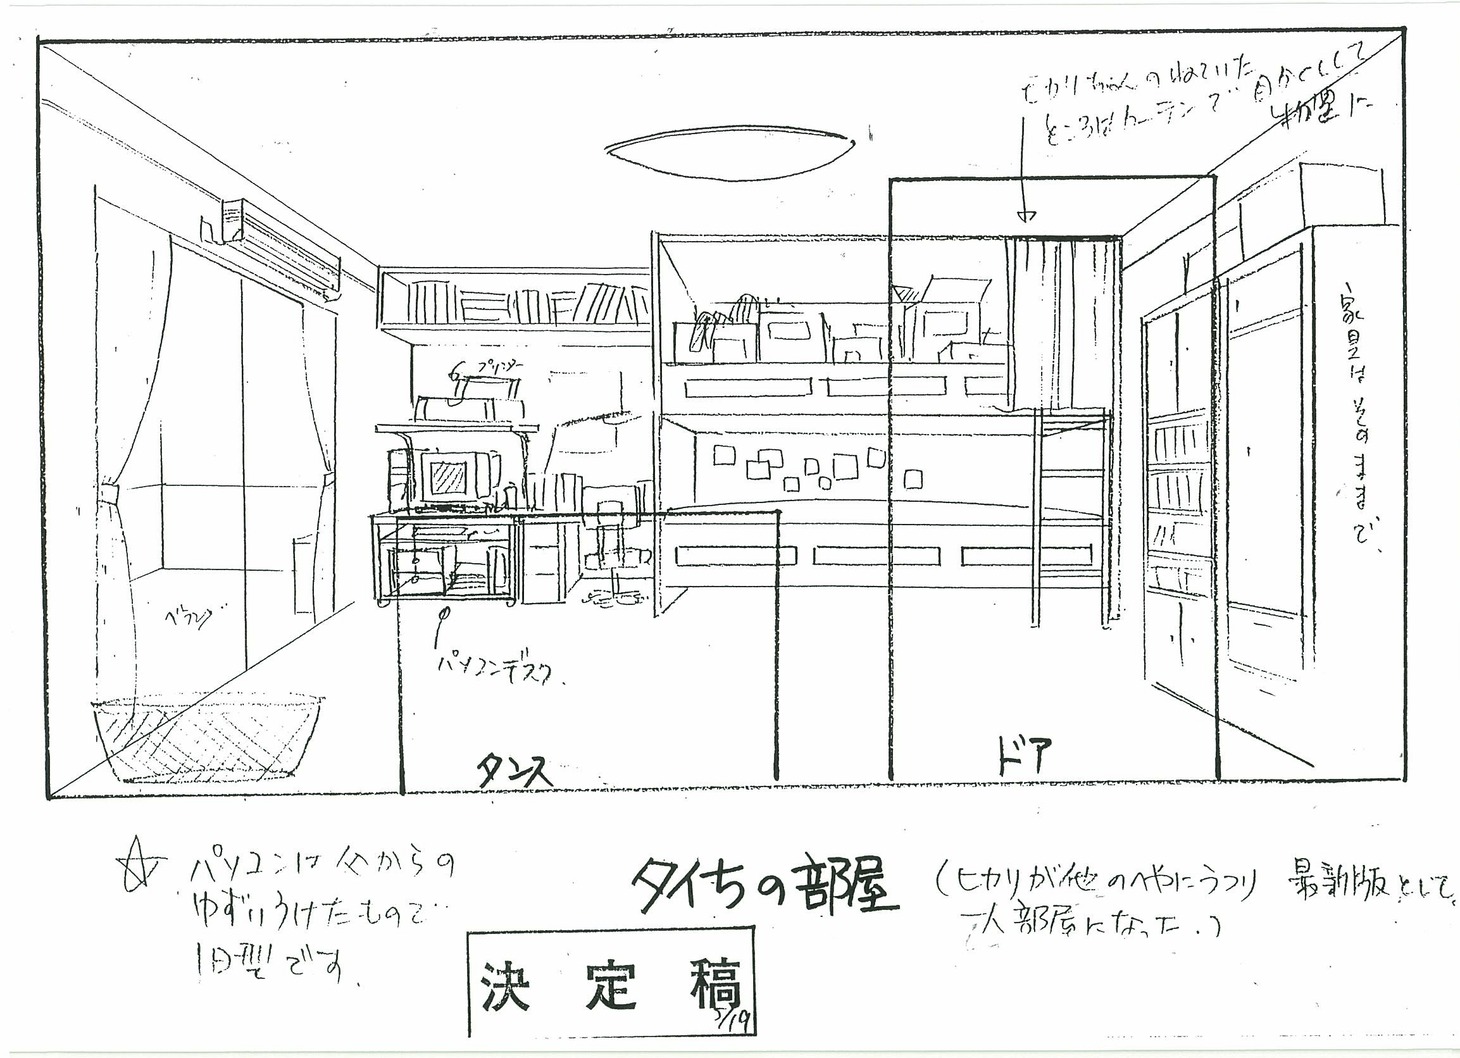 ヒカリちゃんのねていた
ところはカーテンで目かくしして
物置に
家具はそのままで、
プリンター
ベランダ
パソコンデスク.
タンス
ドア
☆ パソコンは父からの
ゆずりうけたもので
旧型です.
タイちの部屋
(ヒカリが他のへやにうつり
一人部屋になった.)
最新版として。
決定稿
5/19